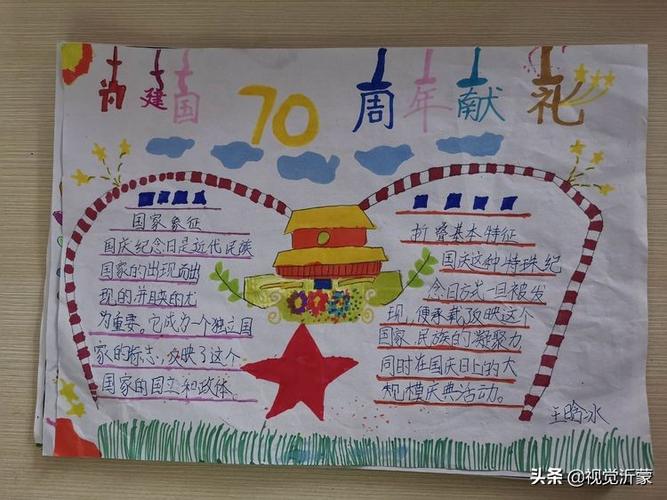 为建国70周年献礼
国家象征
国庆纪念日是近代民族
国家的出现而出
现的并且映的尤
为重要。它成为一个独立国
家的标志,反映了这个
国家的国立和政体。
折叠基本特征
国庆这种特殊纪
念日方式一旦被发
现,便承载反映这个
国家、民族的凝聚力
同时在国庆日上的大
规模庆典活动。
王晗冰
头条@视觉沂蒙